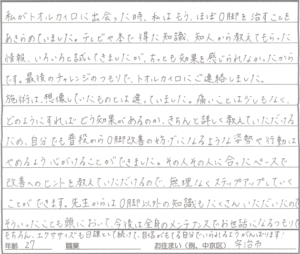 私がトオルカイロに出会った時、私はもう、ほぼO脚を治すことを
あきらめていました。テレビや本で得た知識、知人から教えてもらった
情報、いろいろと試してきましたが、ちっとも効果を感じられなかったから
です。最後のチャレンジのつもりで、トオルカイロにご連絡しました。
施術は、想像していたものとは違っていました。痛いことは少しもなく、
どのようにすればどう効果があるのか、きちんと詳しく教えていただける
ため、自分でも普段からO脚改善の妨げになるような姿勢や行動は
やめるよう心がけることができました。その人その人に合ったペースで
改善へのヒントを教えていただけるので、無理なくステップアップしていく
ことができます。先生からはO脚以外の知識もたくさんいただいたので
そういったことも頭において、今後は全身のメンテナンスでお世話になるつもりです
もちろん、エクササイズも日課として続けて、自信がもてる自分でいられるようがんばります!
年齢 27 職業 お住まい(例、中京区) 宇治市